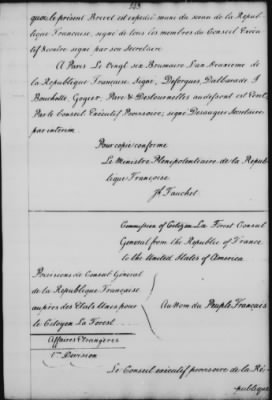 que le présent Brevet est expedié muni du sceau de la Repub-
lique Francaise, signé de tous les membres du Conseil Execu-
tif
signé par son Secretaire
A Paris Le Vingt six Brumaire L'an deuxieme de
la Republique Française. Signé, Deforgues, Dalbarade J
Bouchotte, Gohier, Pare & Destournelles
Par le Conseil Executif Provisoire; signé Desaugiers Secretaire
par interim
Pour copie conforme
Le Ministre Plenipotentiaire de la Repub-
lique Française
Jh Fauchet
Commission of Citizen La Forest Consul
General from the Republic of France
to the United States of America
Provisions de Consul Général
de la République Française
auprès des Etats Unis pour
le Citoyen La Forest
Au Nom du Peuple Français
Affaires Etrangeres
1re Division
Le Conseil executif provisoire de la Ré-
publique